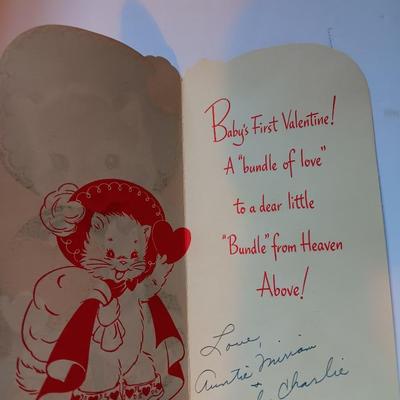 Baby's First Valentine!
A "bundle of love"
to a dear little
"Bundle" from Heaven
Above!
Love,
Auntie Miriam
+
Charlie